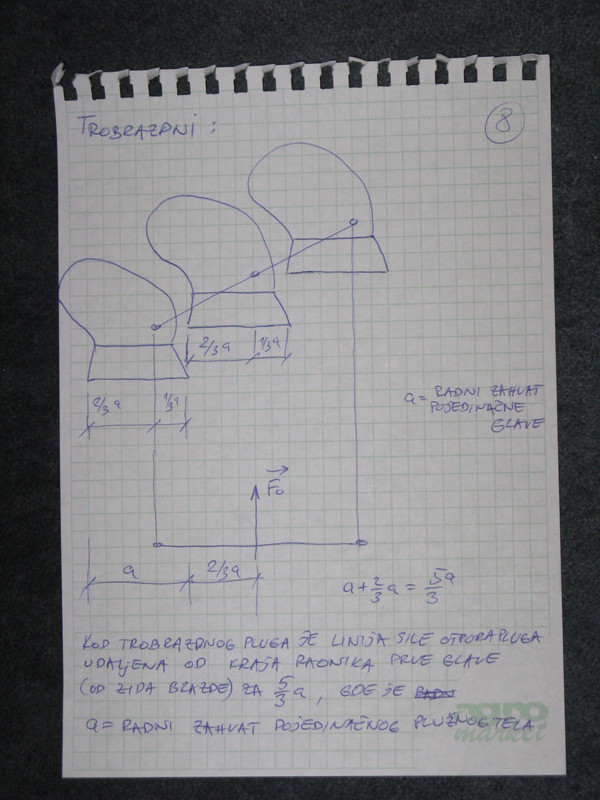 8
TROBRAZDNI :
2/3a 1/3a
2/3a 1/3a
a = RADNI ZAHVAT
POJEDINAČNE
GLAVE
F₀
a 2/3a
a + 2/3 a = 5a/3
KOD TROBRAZDNOG PLUGA JE LINIJA SILE OTPORA PLUGA
UDALJENA OD KRAJA RAONIKA PRVE GLAVE
(OD ZIDA BRAZDE) ZA 5/3 a, GDE JE
a = RADNI ZAHVAT POJEDINAČNOG PLUŽNOG TELA
market